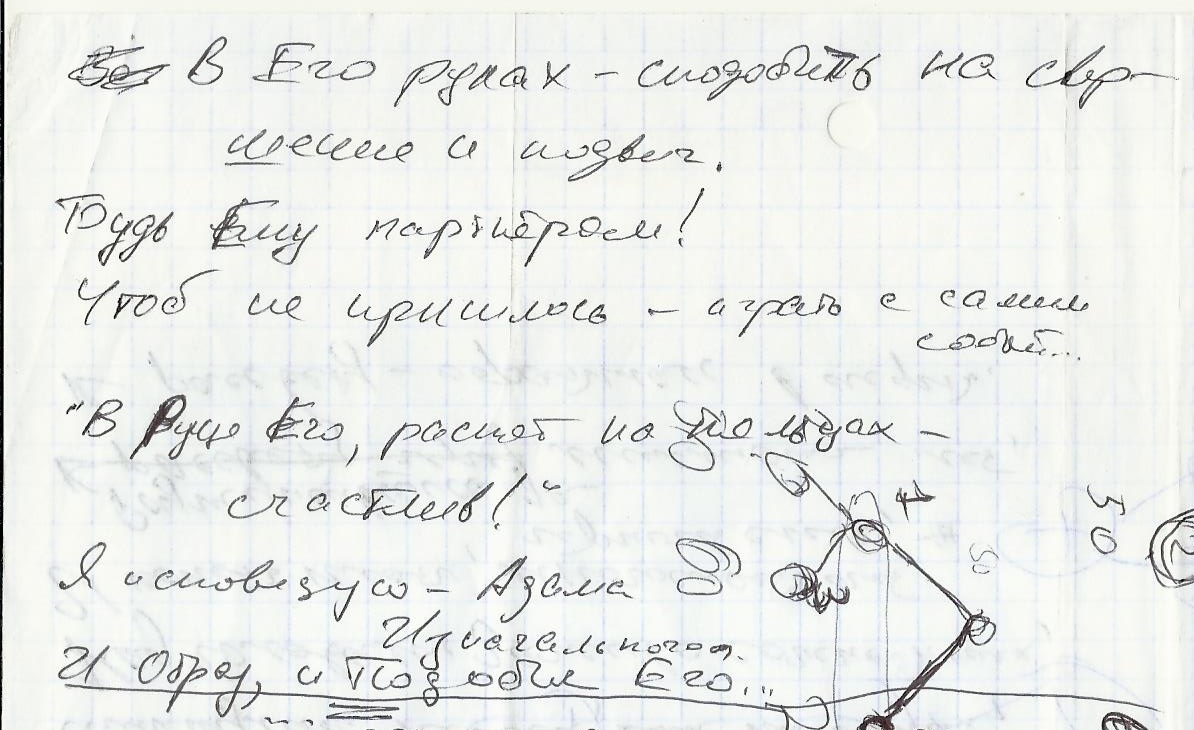 В Его руках – сподобить на свер-
шение и подвиг.
Будь Ему партнёром!
Чтоб не пришлось – играть с самим
собой...
"В Руце Его, распят на пальцах –
счастлив!"
Я исповедую – Адама
Изначального.
И Образ, и Подобия Его...